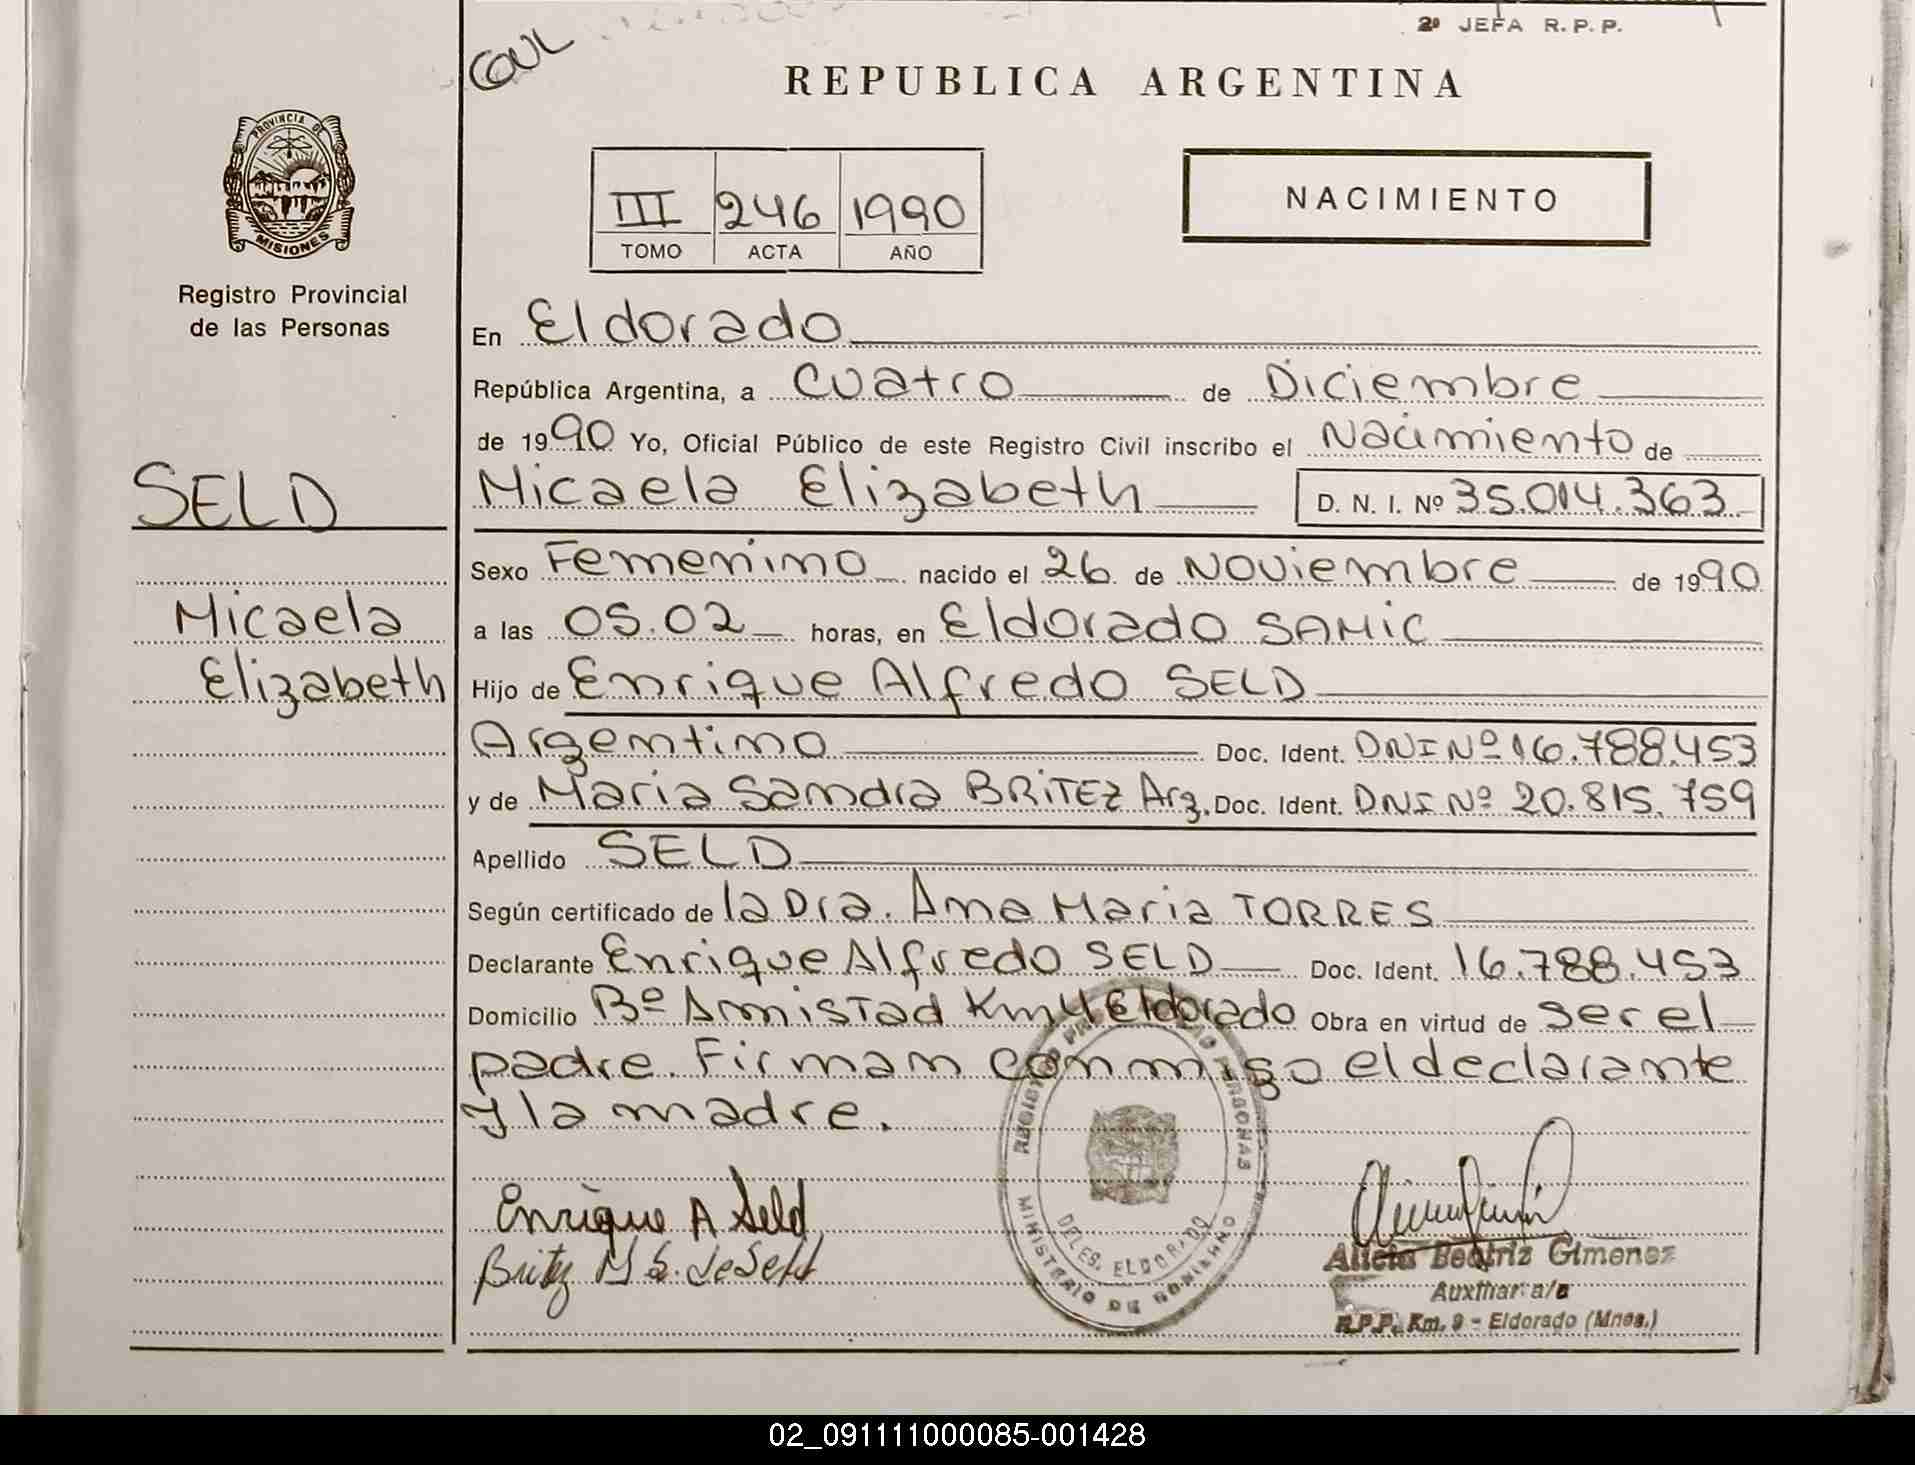 2ª JEFA R.P.P.
REPUBLICA ARGENTINA
PROVINCIA DE
MISIONES
Registro Provincial
de las Personas
III 246 1990
TOMO ACTA AÑO
NACIMIENTO
En Eldorado
República Argentina, a Cuatro de Diciembre
de 1990 Yo, Oficial Público de este Registro Civil inscribo el Nacimiento de
Micaela Elizabeth D. N. I. Nº 35.014.363
SELD
Micaela
Elizabeth
Sexo Femenino nacido el 26 de Noviembre de 1990
a las 05.02 horas, en Eldorado SAMIC
Hijo de Enrique Alfredo SELD
Argentino Doc. Ident. DNI Nº 16.788.453
y de Maria Sandra BRITEZ Arg. Doc. Ident. DNI Nº 20.815.759
Apellido SELD
Según certificado de la Dra. Ana Maria TORRES
Declarante Enrique Alfredo SELD Doc. Ident. 16.788.453
Domicilio Bº Amistad Km 4 Eldorado Obra en virtud de ser el
padre. Firman conmigo el declarante
y la madre.
Enrique A Seld
Britez M S. de Seld
DELEG. ELDORADO
MINISTERIO DE GOBIERNO
Alicia Beatriz Gimenez
Auxiliar a/c
R.P.P. Km. 9 - Eldorado (Mnes.)
02_091111000085-001428